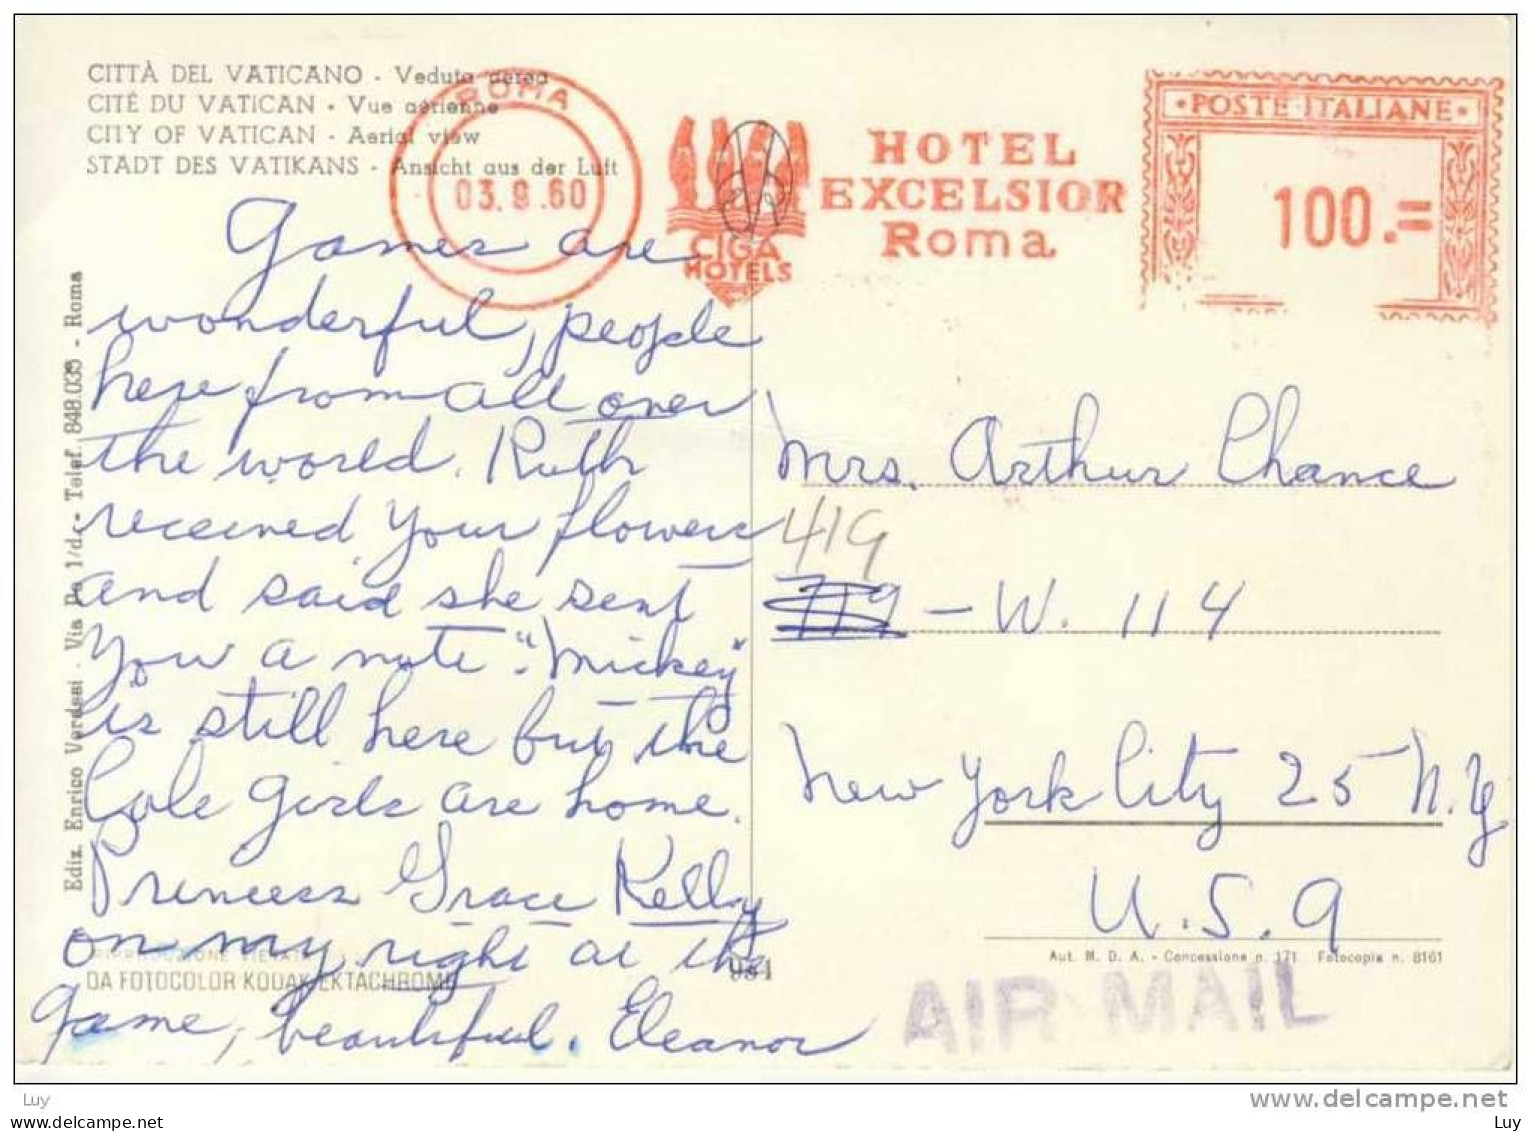 CITTÀ DEL VATICANO - Veduta aerea
CITÉ DU VATICAN - Vue aérienne
CITY OF VATICAN - Aerial view
STADT DES VATIKANS - Ansicht aus der Luft
ROMA
03.9.60
CIGA
HOTELS
HOTEL
EXCELSIOR
Roma
POSTE ITALIANE
100.=
Games are
wonderful, people
here from all over
the world. Ruth
received your flowers
and said she sent
you a note. "Mickey"
is still here but the
Cole girls are home.
Princess Grace Kelly
on my right at the
game, beautiful. Eleanor
Mrs. Arthur Chance
419
719 - W. 114
New York City 25 N.Y
U.S.A
AIR MAIL
Ediz. Enrico Verdesi - Via Po 1/d - Telef. 848.035 - Roma
RIPRODUZIONE VIETATA
DA FOTOCOLOR KODAK EKTACHROME
984
Aut. M. D. A. - Concessione n. 171 Fotocopia n. 8161
Luy
www.delcampe.net
Luy
Luy